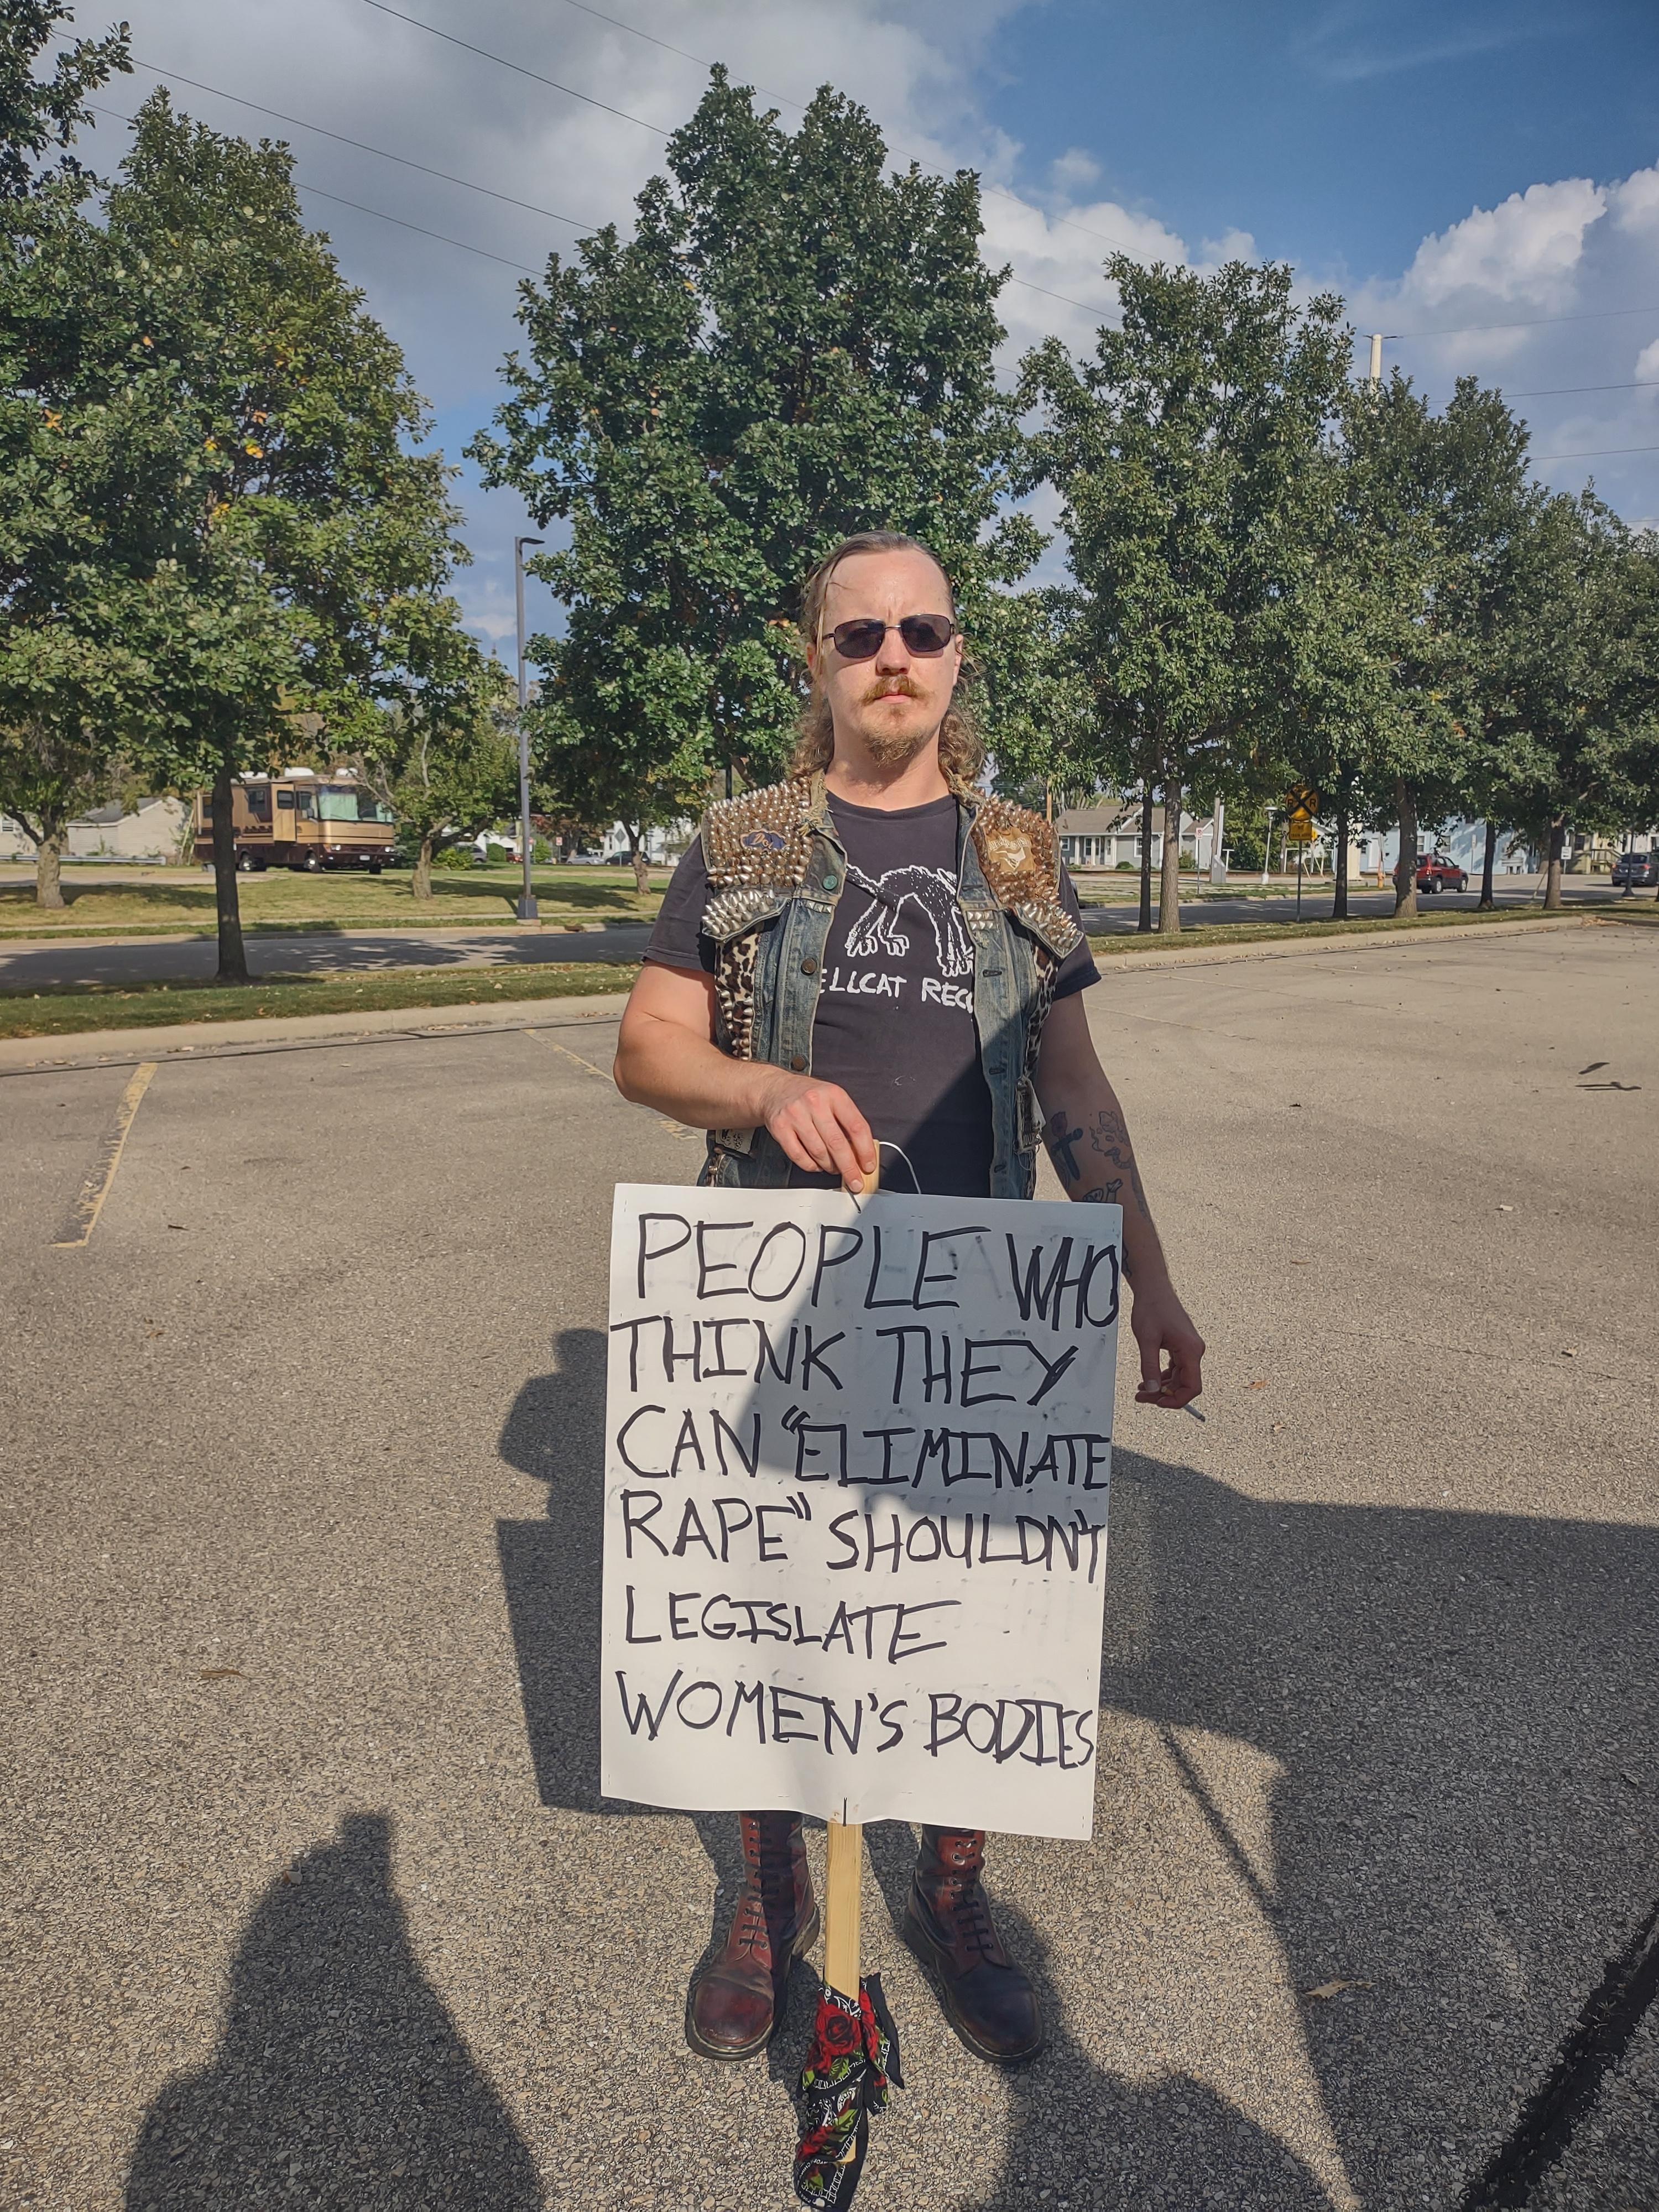 ELLCAT REC
PEOPLE WHO
THINK THEY
CAN "ELIMINATE
RAPE" SHOULDN'T
LEGISLATE
WOMEN'S BODIES